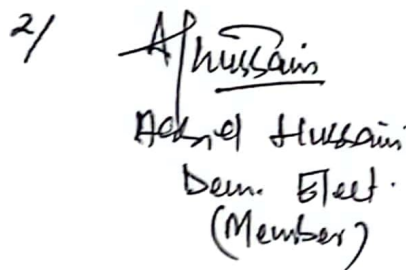 2/ Ajhussain
Hussain
Dem. Elect.
(Member)